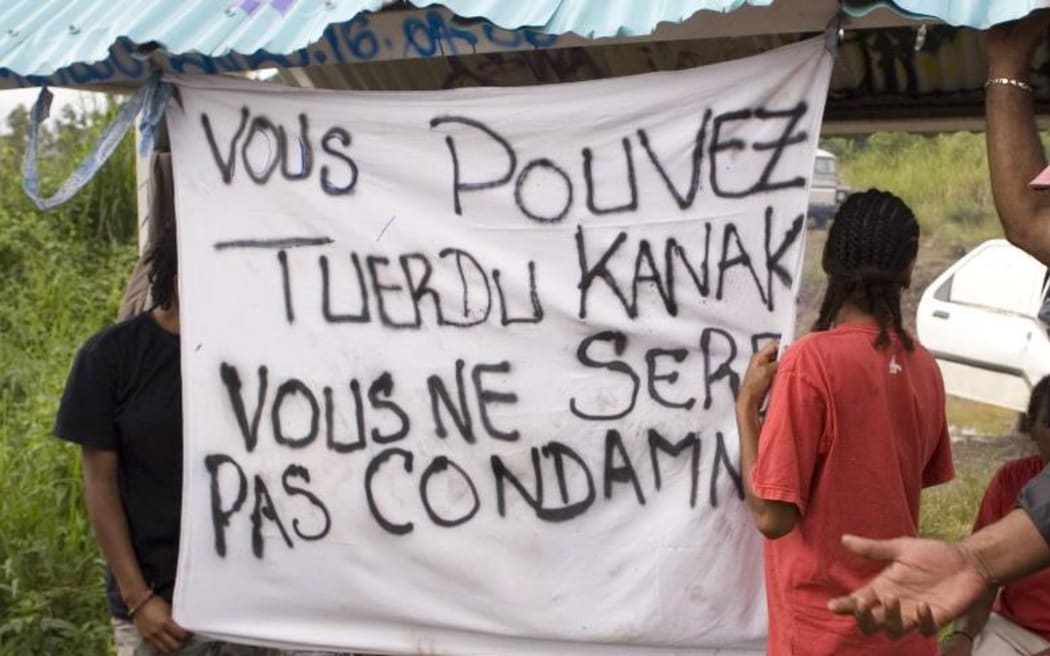 VOUS POUVEZ
TUER DU KANAK
VOUS NE SER
PAS CONDAMN